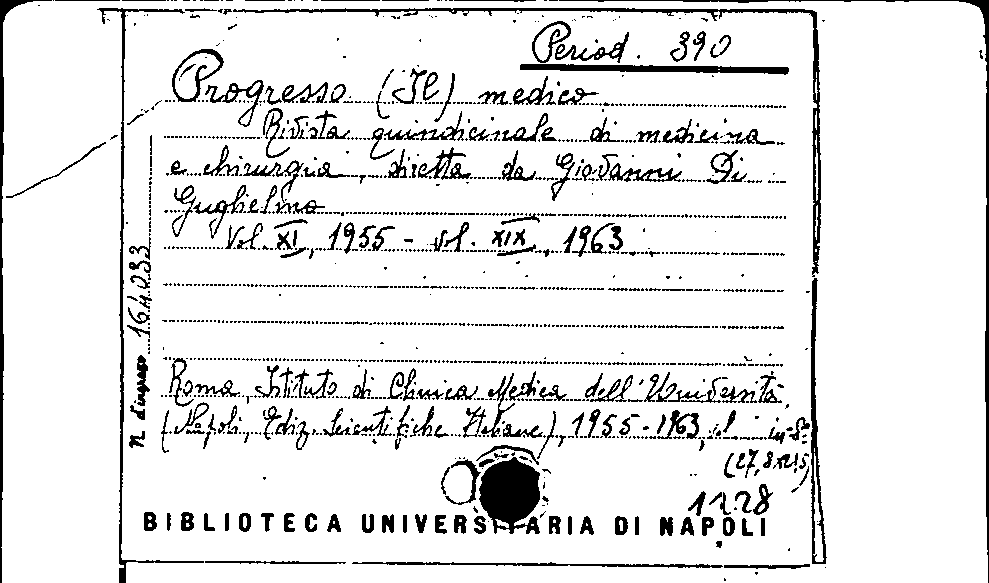 Period. 390
Progresso (Il) medico.
Rivista quindicinale di medicina
e chirurgia, diretta da Giovanni Di
Guglielmo
Vol. XI, 1955 - vol. XIX, 1963.
N. d'ingresso 164033
Roma, Istituto di Clinica Medica dell'Università
(Napoli, Ediz. Scientifiche Italiane), 1955-1963, in-8°
(27,8x21,5)
1228
BIBLIOTECA UNIVERSITARIA DI NAPOLI